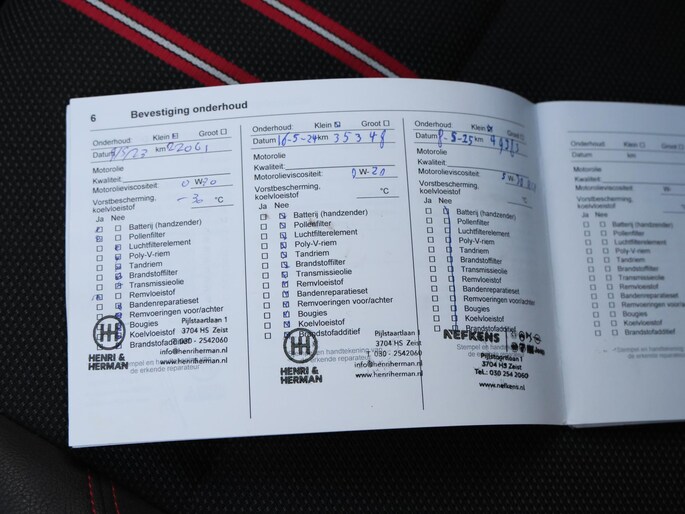 6 Bevestiging onderhoud
Onderhoud: Klein Groot
Datum km 22061
Motorolie
Kwaliteit:
Motorolieviscositeit: 0 W-20
Vorstbescherming, -30 °C
koelvloeistof
Ja Nee
Batterij (handzender)
Pollenfilter
Luchtfilterelement
Poly-V-riem
Tandriem
Brandstoffilter
Transmissieolie
Remvloeistof
Bandenreparatieset
Remvoeringen voor/achter
Bougies
Koelvloeistof
HENRI & HERMAN
Pijlstaartlaan 1
3704 HS Zeist
T. 030 - 2542060
info@henriherman.nl
www.henriherman.nl
Onderhoud: Klein Groot
Datum 16-5-24 km 35348
Motorolie
Kwaliteit:
Motorolieviscositeit: 0 W-20
Vorstbescherming, °C
koelvloeistof
Ja Nee
Batterij (handzender)
Pollenfilter
Luchtfilterelement
Poly-V-riem
Tandriem
Brandstoffilter
Transmissieolie
Remvloeistof
Bandenreparatieset
Remvoeringen voor/achter
Bougies
Koelvloeistof
Brandstofadditief
HENRI & HERMAN
Pijlstaartlaan 1
3704 HS Zeist
T. 030 - 2542060
info@henriherman.nl
www.henriherman.nl
Onderhoud: Klein Groot
Datum -5-25 km
Motorolie
Kwaliteit:
Motorolieviscositeit: W-
Vorstbescherming, °C
koelvloeistof
Ja Nee
Batterij (handzender)
Pollenfilter
Luchtfilterelement
Poly-V-riem
Tandriem
Brandstoffilter
Transmissieolie
Remvloeistof
Bandenreparatieset
Remvoeringen voor/achter
Bougies
Koelvloeistof
Brandstofadditief
NEFKENS
Stempel en handtekening
de erkende reparateur
Pijlstaartlaan 1
3704 HS Zeist
Tel.: 030 254 2060
www.nefkens.nl
Onderhoud: Klein
Datum km
Motorolie
Kwaliteit:
Motorolieviscositeit: W-
Vorstbescherming,
koelvloeistof
Ja Nee
Batterij (handzender)
Pollenfilter
Luchtfilterelement
Poly-V-riem
Tandriem
Brandstoffilter
Transmissieolie
Remvloeistof
Bandenreparatieset
Remvoeringen voor/achter
Bougies
Koelvloeistof
Brandstofadditief